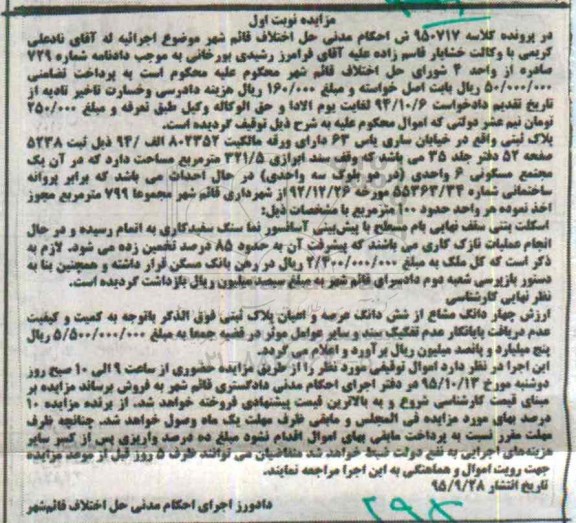 مزایده نوبت اول
در پرونده کلاسه ۹۵۰۷۱۷ ش احکام مدنی حل اختلاف قائم شهر موضوع اجرائیه له آقای نادعلی
کریمی با وکالت خشایار قاسم زاده علیه آقای فرامرز رشیدی بورخانی به موجب دادنامه شماره ۷۲۹
صادره از واحد ۴ شورای حل اختلاف قائم شهر محکوم علیه محکوم است به پرداخت تضامنی
۵۰/۰۰۰/۰۰۰ ریال بابت اصل خواسته و مبلغ ۱۶۰/۰۰۰ ریال هزینه دادرسی وخسارت تاخیر تادیه از
تاریخ تقدیم دادخواست ۹۴/۱۰/۶ لغایت یوم الادا و حق الوکاله وکیل طبق تعرفه و مبلغ ۲۵۰/۰۰۰
تومان نیم عشر دولتی که اموال محکوم علیه به شرح ذیل توقیف گردیده است.
پلاک ثبتی واقع در خیابان ساری یاس ۶۳ دارای ورقه مالکیت ۸۰۲۳۵۲ الف /۹۴ ذیل ثبت ۵۲۳۸
صفحه ۵۲ دفتر جلد ۳۵ می باشد که وقف سند ابرازی ۳۲۱/۵ مترمربع مساحت دارد که در آن یک
مجتمع مسکونی ۶ واحدی (در دو بلوک سه واحدی) در حال احداث می باشد که برابر پروانه
ساختمانی شماره ۵۵۳۶۳/۳۴ مورخه ۹۲/۱۲/۲۶ از شهرداری قائم شهر مجموعا ۷۹۹ مترمربع مجوز
اخذ نموده هر واحد حدود ۱۰۰ مترمربع با مشخصات ذیل:
اسکلت بتنی سقف نهایی بام مسطح با پیش‌بینی آسانسور نما سنگ سفیدکاری به اتمام رسیده و در حال
انجام عملیات نازک کاری می باشند که پیشرفت آن به حدود ۸۵ درصد تخمین زده می شود. لازم به
ذکر است که کل ملک به مبلغ ۲/۴۰۰/۰۰۰/۰۰۰ ریال در رهن بانک مسکن قرار داشته و همچنین بنا به
دستور بازپرسی شعبه دوم دادسرای قائم شهر به مبلغ سیصد میلیون ریال بازداشت گردیده است.
نظر نهایی کارشناسی
ارزش چهار دانگ مشاع از شش دانگ عرصه و اعیان پلاک ثبتی فوق الذکر باتوجه به کمیت و کیفیت
عدم دریافت پایانکار عدم تفکیک سند و سایر عوامل موثر در قضیه جمعا به مبلغ ۵/۵۰۰/۰۰۰/۰۰۰ ریال
پنج میلیارد و پانصد میلیون ریال برآورد و اعلام می گردد.
این اجرا در نظر دارد اموال توقیفی مورد نظر را از طریق مزایده حضوری از ساعت ۹ الی ۱۰ صبح روز
دوشنبه مورخ ۹۵/۱۰/۱۳ در دفتر اجرای احکام مدنی دادگستری قائم شهر به فروش برساند مزایده بر
مبنای قیمت کارشناسی شروع و به بالاترین قیمت پیشنهادی فروخته خواهد شد. از برنده مزایده ۱۰
درصد بهای مورد مزایده فی المجلس و مابقی ظرف مهلت یک ماه وصول خواهد شد. چنانچه ظرف
مهلت مقرر نسبت به پرداخت مابقی بهای اموال اقدام نشود مبلغ ده درصد واریزی پس از کسر سایر
هزینه‌های اجرایی به نفع دولت ضبط خواهد شد متقاضیان می توانند ظرف ۵ روز قبل از موعد مزایده
جهت رویت اموال و هماهنگی به این اجرا مراجعه نمایند.
تاریخ انتشار ۹۵/۹/۲۸
دادورز اجرای احکام مدنی حل اختلاف قائم‌شهر